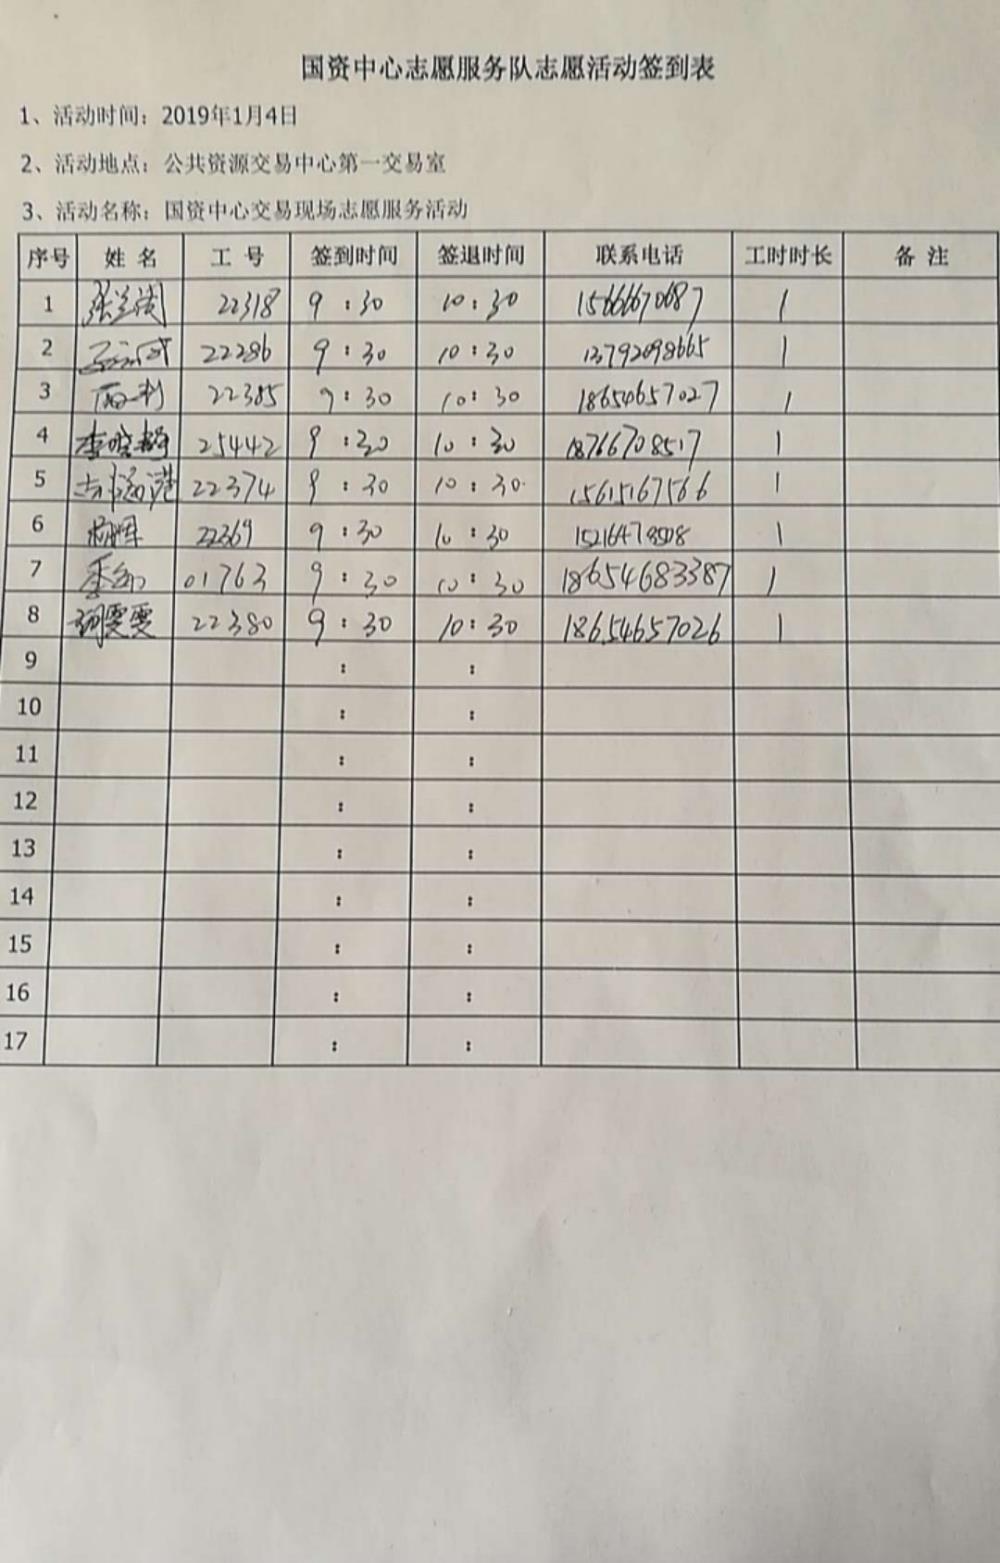 国资中心志愿服务队志愿活动签到表
1、活动时间：2019年1月4日
2、活动地点：公共资源交易中心第一交易室
3、活动名称：国资中心交易现场志愿服务活动
序号 姓 名 工 号 签到时间 签退时间 联系电话 工时时长 备 注
1 22318 9:30 10:30 15666670687 1
2 22286 9:30 10:30 13792098665 1
3 22385 9:30 10:30 18654657027 1
4 李晓 25442 9:30 10:30 18766708517 1
5 22374 9:30 10:30 15615167566 1
6 22369 9:30 10:30 1
7 01763 9:30 10:30 18654683387 1
8 胡雯雯 22380 9:30 10:30 18654657026 1
9 : :
10 : :
11 : :
12 : :
13 : :
14 : :
15 : :
16 : :
17 : :